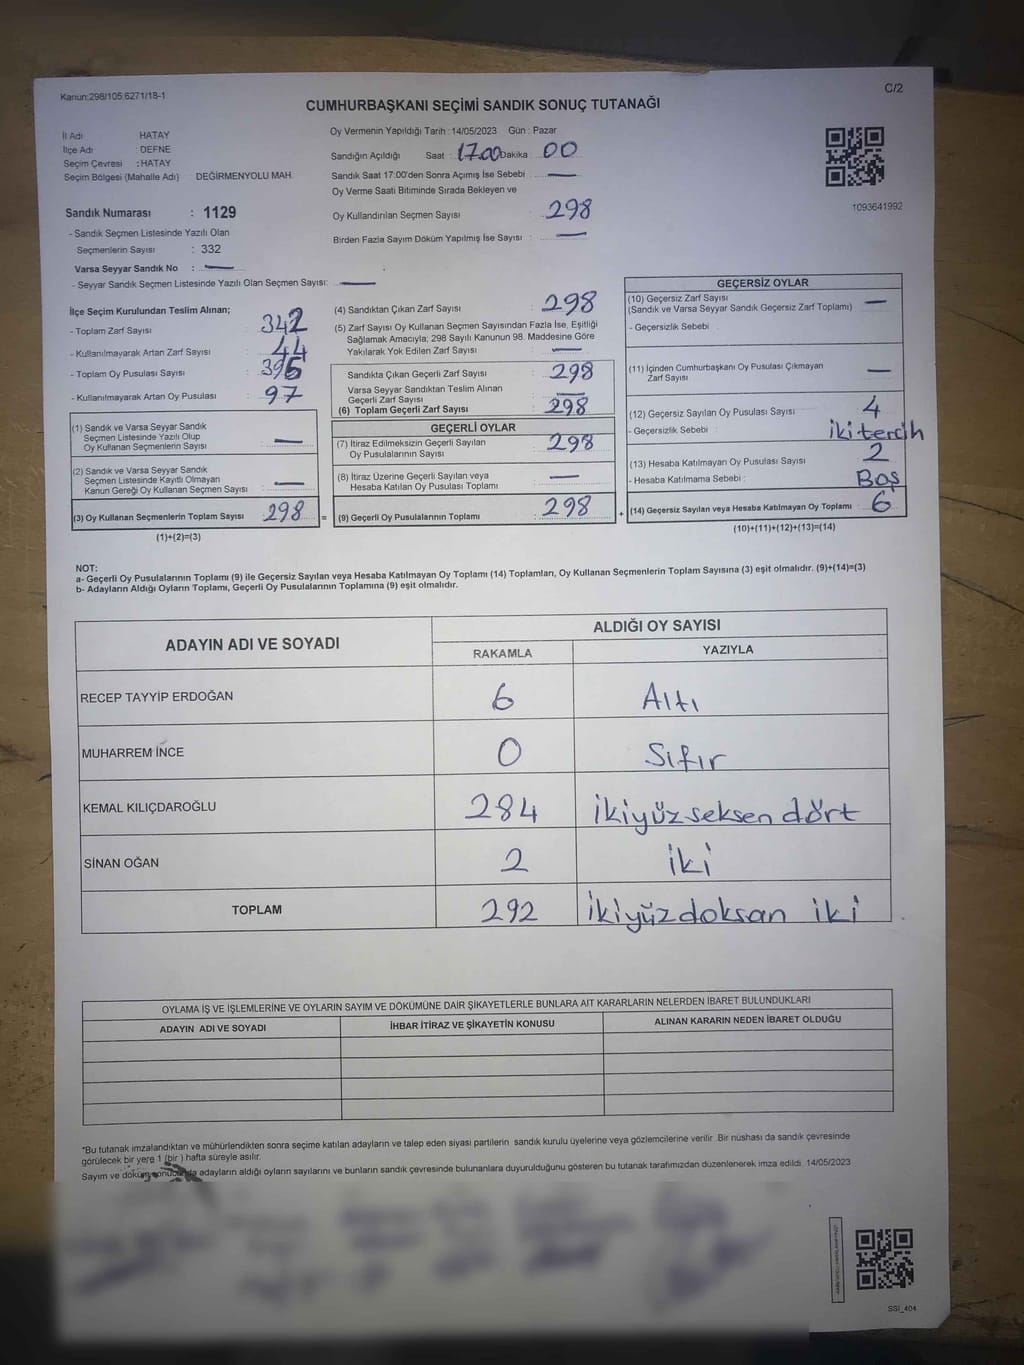 Kanun:298/105;6271/18-1
C/2
CUMHURBAŞKANI SEÇİMİ SANDIK SONUÇ TUTANAĞI
İl Adı HATAY
İlçe Adı : DEFNE
Seçim Çevresi : HATAY
Seçim Bölgesi (Mahalle Adı) : DEĞİRMENYOLU MAH.
Sandık Numarası : 1129
- Sandık Seçmen Listesinde Yazılı Olan
Seçmenlerin Sayısı : 332
Varsa Seyyar Sandık No : —
- Seyyar Sandık Seçmen Listesinde Yazılı Olan Seçmen Sayısı: —
Oy Vermenin Yapıldığı Tarih : 14/05/2023 Gün : Pazar
Sandığın Açıldığı Saat : 17.00 Dakika 00
Sandık Saat 17:00'den Sonra Açımış İse Sebebi —
Oy Verme Saati Bitiminde Sırada Bekleyen ve
Oy Kullandırılan Seçmen Sayısı 298
Birden Fazla Sayım Döküm Yapılmış İse Sayısı : —
1093641992
İlçe Seçim Kurulundan Teslim Alınan;
- Toplam Zarf Sayısı 342
- Kullanılmayarak Artan Zarf Sayısı 44
- Toplam Oy Pusulası Sayısı
- Kullanılmayarak Artan Oy Pusulası 97
(1) Sandık ve Varsa Seyyar Sandık
Seçmen Listesinde Yazılı Olup
Oy Kullanan Seçmenlerin Sayısı —
(2) Sandık ve Varsa Seyyar Sandık
Seçmen Listesinde Kayıtlı Olmayan
Kanun Gereği Oy Kullanan Seçmen Sayısı —
(3) Oy Kullanan Seçmenlerin Toplam Sayısı 298
(1)+(2)=(3)
=
(4) Sandıktan Çıkan Zarf Sayısı : 298
(5) Zarf Sayısı Oy Kullanan Seçmen Sayısından Fazla İse, Eşitliği
Sağlamak Amacıyla; 298 Sayılı Kanunun 98. Maddesine Göre
Yakılarak Yok Edilen Zarf Sayısı : —
Sandıkta Çıkan Geçerli Zarf Sayısı : 298
Varsa Seyyar Sandıktan Teslim Alınan
Geçerli Zarf Sayısı —
(6) Toplam Geçerli Zarf Sayısı 298
GEÇERLİ OYLAR
(7) İtiraz Edilmeksizin Geçerli Sayılan
Oy Pusulalarının Sayısı 298
(8) İtiraz Üzerine Geçerli Sayılan veya
Hesaba Katılan Oy Pusulası Toplamı —
(9) Geçerli Oy Pusulalarının Toplamı 298
+
GEÇERSİZ OYLAR
(10) Geçersiz Zarf Sayısı —
(Sandık ve Varsa Seyyar Sandık Geçersiz Zarf Toplamı)
- Geçersizlik Sebebi
(11) İçinden Cumhurbaşkanı Oy Pusulası Çıkmayan
Zarf Sayısı —
(12) Geçersiz Sayılan Oy Pusulası Sayısı 4
- Geçersizlik Sebebi : iki tercih
(13) Hesaba Katılmayan Oy Pusulası Sayısı 2
- Hesaba Katılmama Sebebi : Boş
(14) Geçersiz Sayılan veya Hesaba Katılmayan Oy Toplamı : 6
(10)+(11)+(12)+(13)=(14)
NOT:
a- Geçerli Oy Pusulalarının Toplamı (9) ile Geçersiz Sayılan veya Hesaba Katılmayan Oy Toplamı (14) Toplamları, Oy Kullanan Seçmenlerin Toplam Sayısına (3) eşit olmalıdır. (9)+(14)=(3)
b- Adayların Aldığı Oyların Toplamı, Geçerli Oy Pusulalarının Toplamına (9) eşit olmalıdır.
ADAYIN ADI VE SOYADI ALDIĞI OY SAYISI
RAKAMLA YAZIYLA
RECEP TAYYİP ERDOĞAN 6 Altı
MUHARREM İNCE 0 Sıfır
KEMAL KILIÇDAROĞLU 284 ikiyüz seksen dört
SİNAN OĞAN 2 iki
TOPLAM 292 ikiyüz doksan iki
OYLAMA İŞ VE İŞLEMLERİNE VE OYLARIN SAYIM VE DÖKÜMÜNE DAİR ŞİKAYETLERLE BUNLARA AİT KARARLARIN NELERDEN İBARET BULUNDUKLARI
ADAYIN ADI VE SOYADI İHBAR İTİRAZ VE ŞİKAYETİN KONUSU ALINAN KARARIN NEDEN İBARET OLDUĞU
*Bu tutanak imzalandıktan ve mühürlendikten sonra seçime katılan adayların ve talep eden siyasi partilerin sandık kurulu üyelerine veya gözlemcilerine verilir. Bir nüshası da sandık çevresinde
görülecek bir yere 1 (bir ) hafta süreyle asılır.
Sayım ve döküm sonucunda adayların aldığı oyların sayılarını ve bunların sandık çevresinde bulunanlara duyurulduğunu gösteren bu tutanak tarafımızdan düzenlenerek imza edildi. 14/05/2023
SSI_404